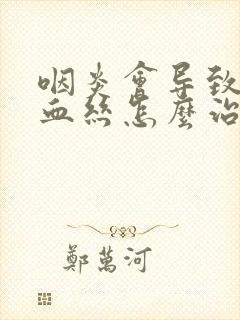 咽炎會导致
血絲怎麼治
鄭萬河